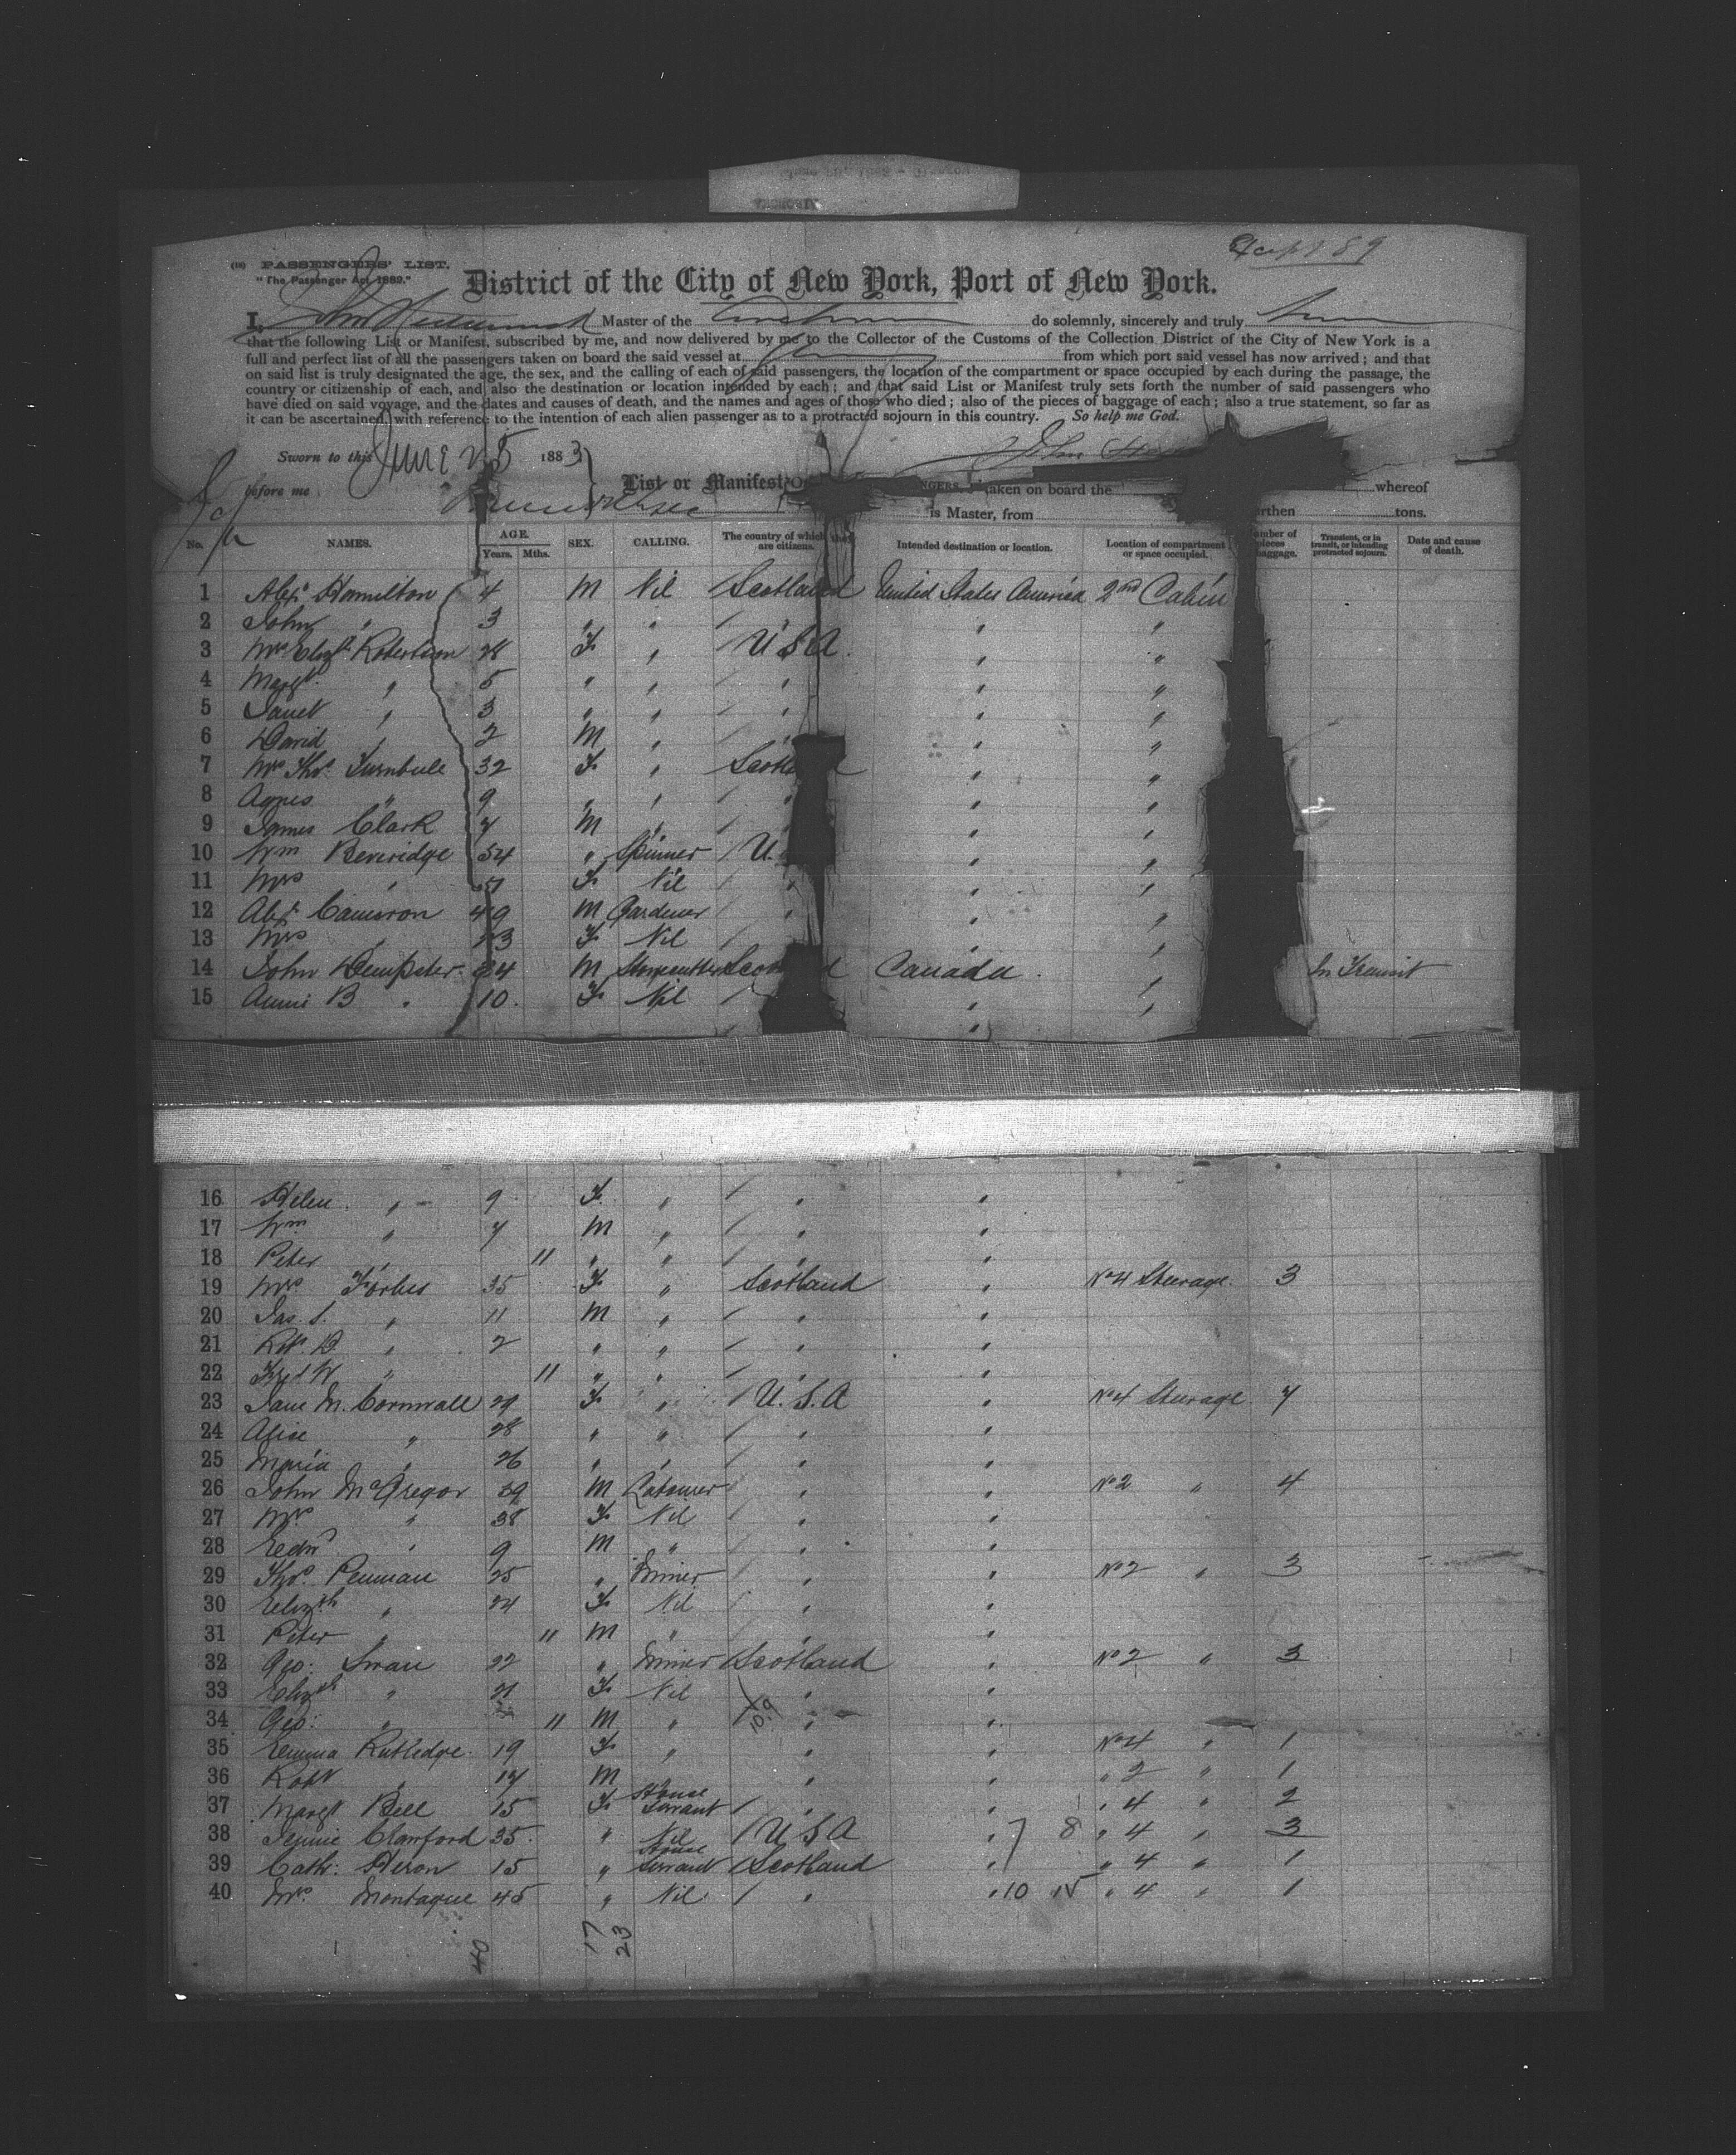 (18) PASSENGERS' LIST.
"The Passenger Act, 1882."
District of the City of New York, Port of New York.
I, John Master of the do solemnly, sincerely and truly
that the following List or Manifest, subscribed by me, and now delivered by me to the Collector of the Customs of the Collection District of the City of New York is a
full and perfect list of all the passengers taken on board the said vessel at from which port said vessel has now arrived; and that
on said list is truly designated the age, the sex, and the calling of each of said passengers, the location of the compartment or space occupied by each during the passage, the
country or citizenship of each, and also the destination or location intended by each; and that said List or Manifest truly sets forth the number of said passengers who
have died on said voyage, and the dates and causes of death, and the names and ages of those who died; also of the pieces of baggage of each; also a true statement, so far as
it can be ascertained, with reference to the intention of each alien passenger as to a protracted sojourn in this country. So help me God.
Sworn to this June 25 1883 John
before me List or Manifest taken on board the whereof
is Master, from tons.
No. NAMES. AGE. Years. Mths. SEX. CALLING. The country of which they are citizens. Intended destination or location. Location of compartment or space occupied. Number of pieces baggage. Transient, or in transit, or intending protracted sojourn. Date and cause of death.
1 Alexr Hamilton 4 M Nil Scotland United States America 2nd Cabin
2 John " 3 " " / " " "
3 Mrs Elizth Robertson 28 F " U S A. " "
4 Margt " 5 " " / " " "
5 Janet " 3 " " / " " "
6 David " 2 M " / " " "
7 Mrs Thos Turnbull 32 F " Scotland " "
8 Agnes " 9 " " / " " "
9 James Clark 7 M " / " " "
10 Wm Beveridge 54 " Spinner / U. " "
11 Mrs " F Nil / " " "
12 Alexr Cameron 49 M Gardener / " " "
13 Mrs " F Nil / " "
14 John Dempster 34 M Stonecutter Scotland Canada. " In Transit
15 Annie B " 10. F Nil / " "
16 Helen " 9 F " / " "
17 Wm " 7 M " / " "
18 Peter " 11 " " / " "
19 Mrs Forbes 35 F " Scotland " No 4 Steerage 3
20 Jas. S. " 11 M " / " "
21 Robt. D. " 2 " " / " "
22 Fred W " 11 " " / " "
23 Jane M. Cornwall 29 F " / U.S.A " No 4 Steerage 7
24 Alice " 28 " " / " "
25 Maria " 26 " " / " "
26 John McGregor 39 M Labourer / " " No 2 " 4
27 Mrs " 38 F Nil / " "
28 Edwd " 9 M " / " "
29 Thos. Penman 25 " Miner / " " No 2 " 3
30 Elizth " 24 F Nil / " "
31 Peter " 11 M " / " "
32 Geo: Swan 22 " Miner / Scotland " No 2 " 3
33 Elizth " 21 F Nil " "
34 Geo: " 11 M " / " "
35 Emma Rutledge 19 F " " " No 4 " 1
36 Robt " 17 M " " " " 2 " 1
37 Margt Bell 15 F House Servant / " " " 4 " 2
38 Jennie Crawford 35 " Nil / U S A " 7 8 " 4 " 3
39 Cath: Heron 15 " House Servant / Scotland " " 4 " 1
40 Mrs. Montague 45 " Nil / " " 10 15 " 4 " 1
40 17 23